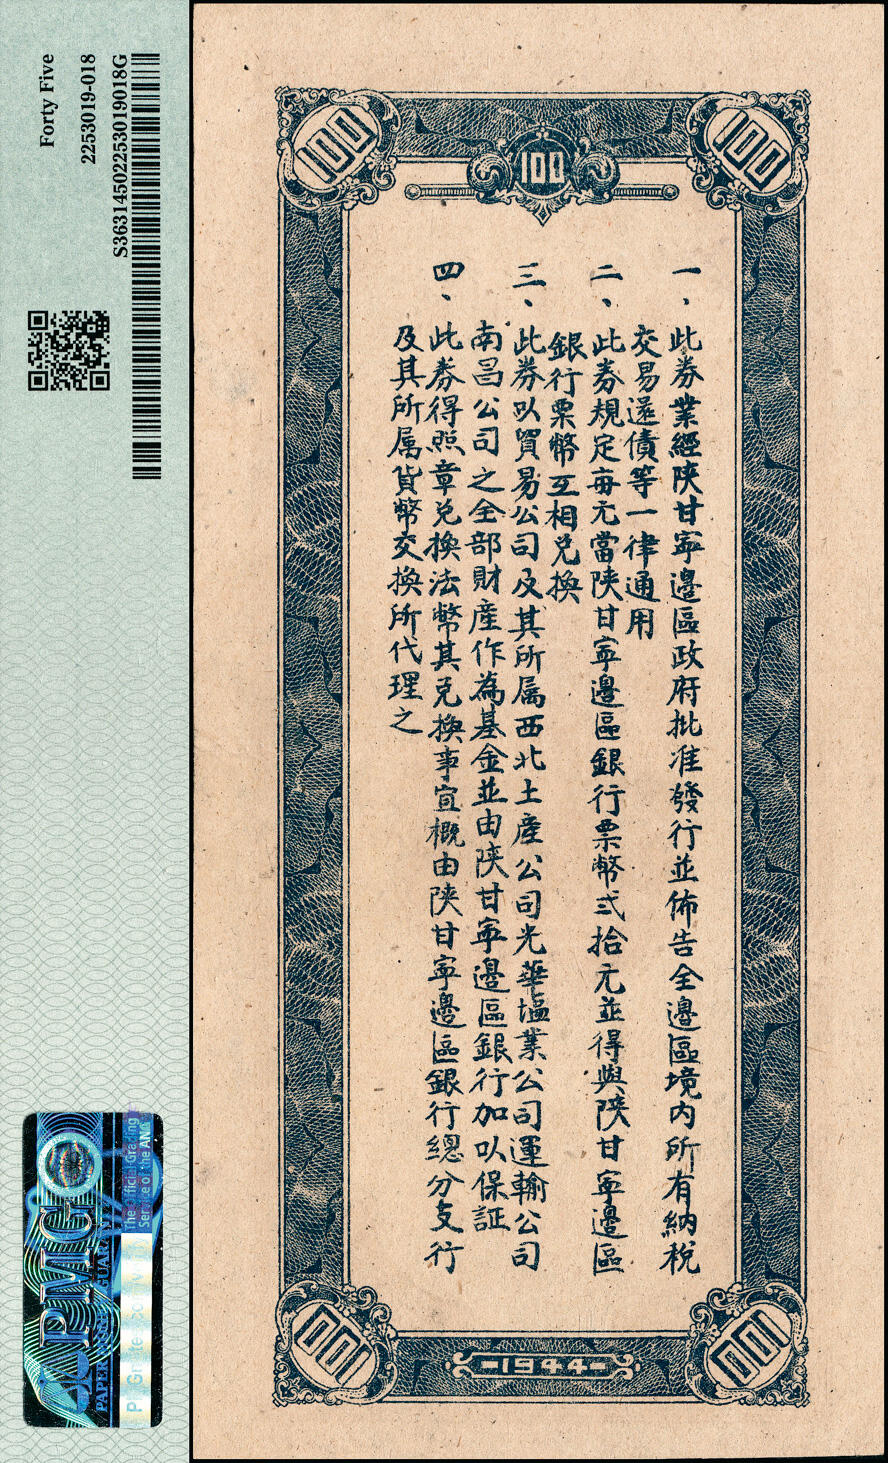 Forty Five
2253019-018
S36314502253019018G
100
100
100
一、此券業經陝甘寧邊區政府批准發行並佈告全邊區境内所有納税
交易還債等一律通用
二、此券規定每元當陝甘寧邊區銀行票幣弍拾元並得與陝甘寧邊區
銀行票幣互相兑換
三、此券以貿易公司及其所属西北土産公司光華塩業公司運輸公司
南昌公司之全部財産作為基金並由陝甘寧邊區銀行加以保証
四、此券得照章兑換法幣其兑換事宜概由陝甘寧邊區銀行總分支行
及其所属貨幣交換所代理之
100
100
-1944-
PMG
PAPER
GUARAN
The Official Grading
Service of the ANA